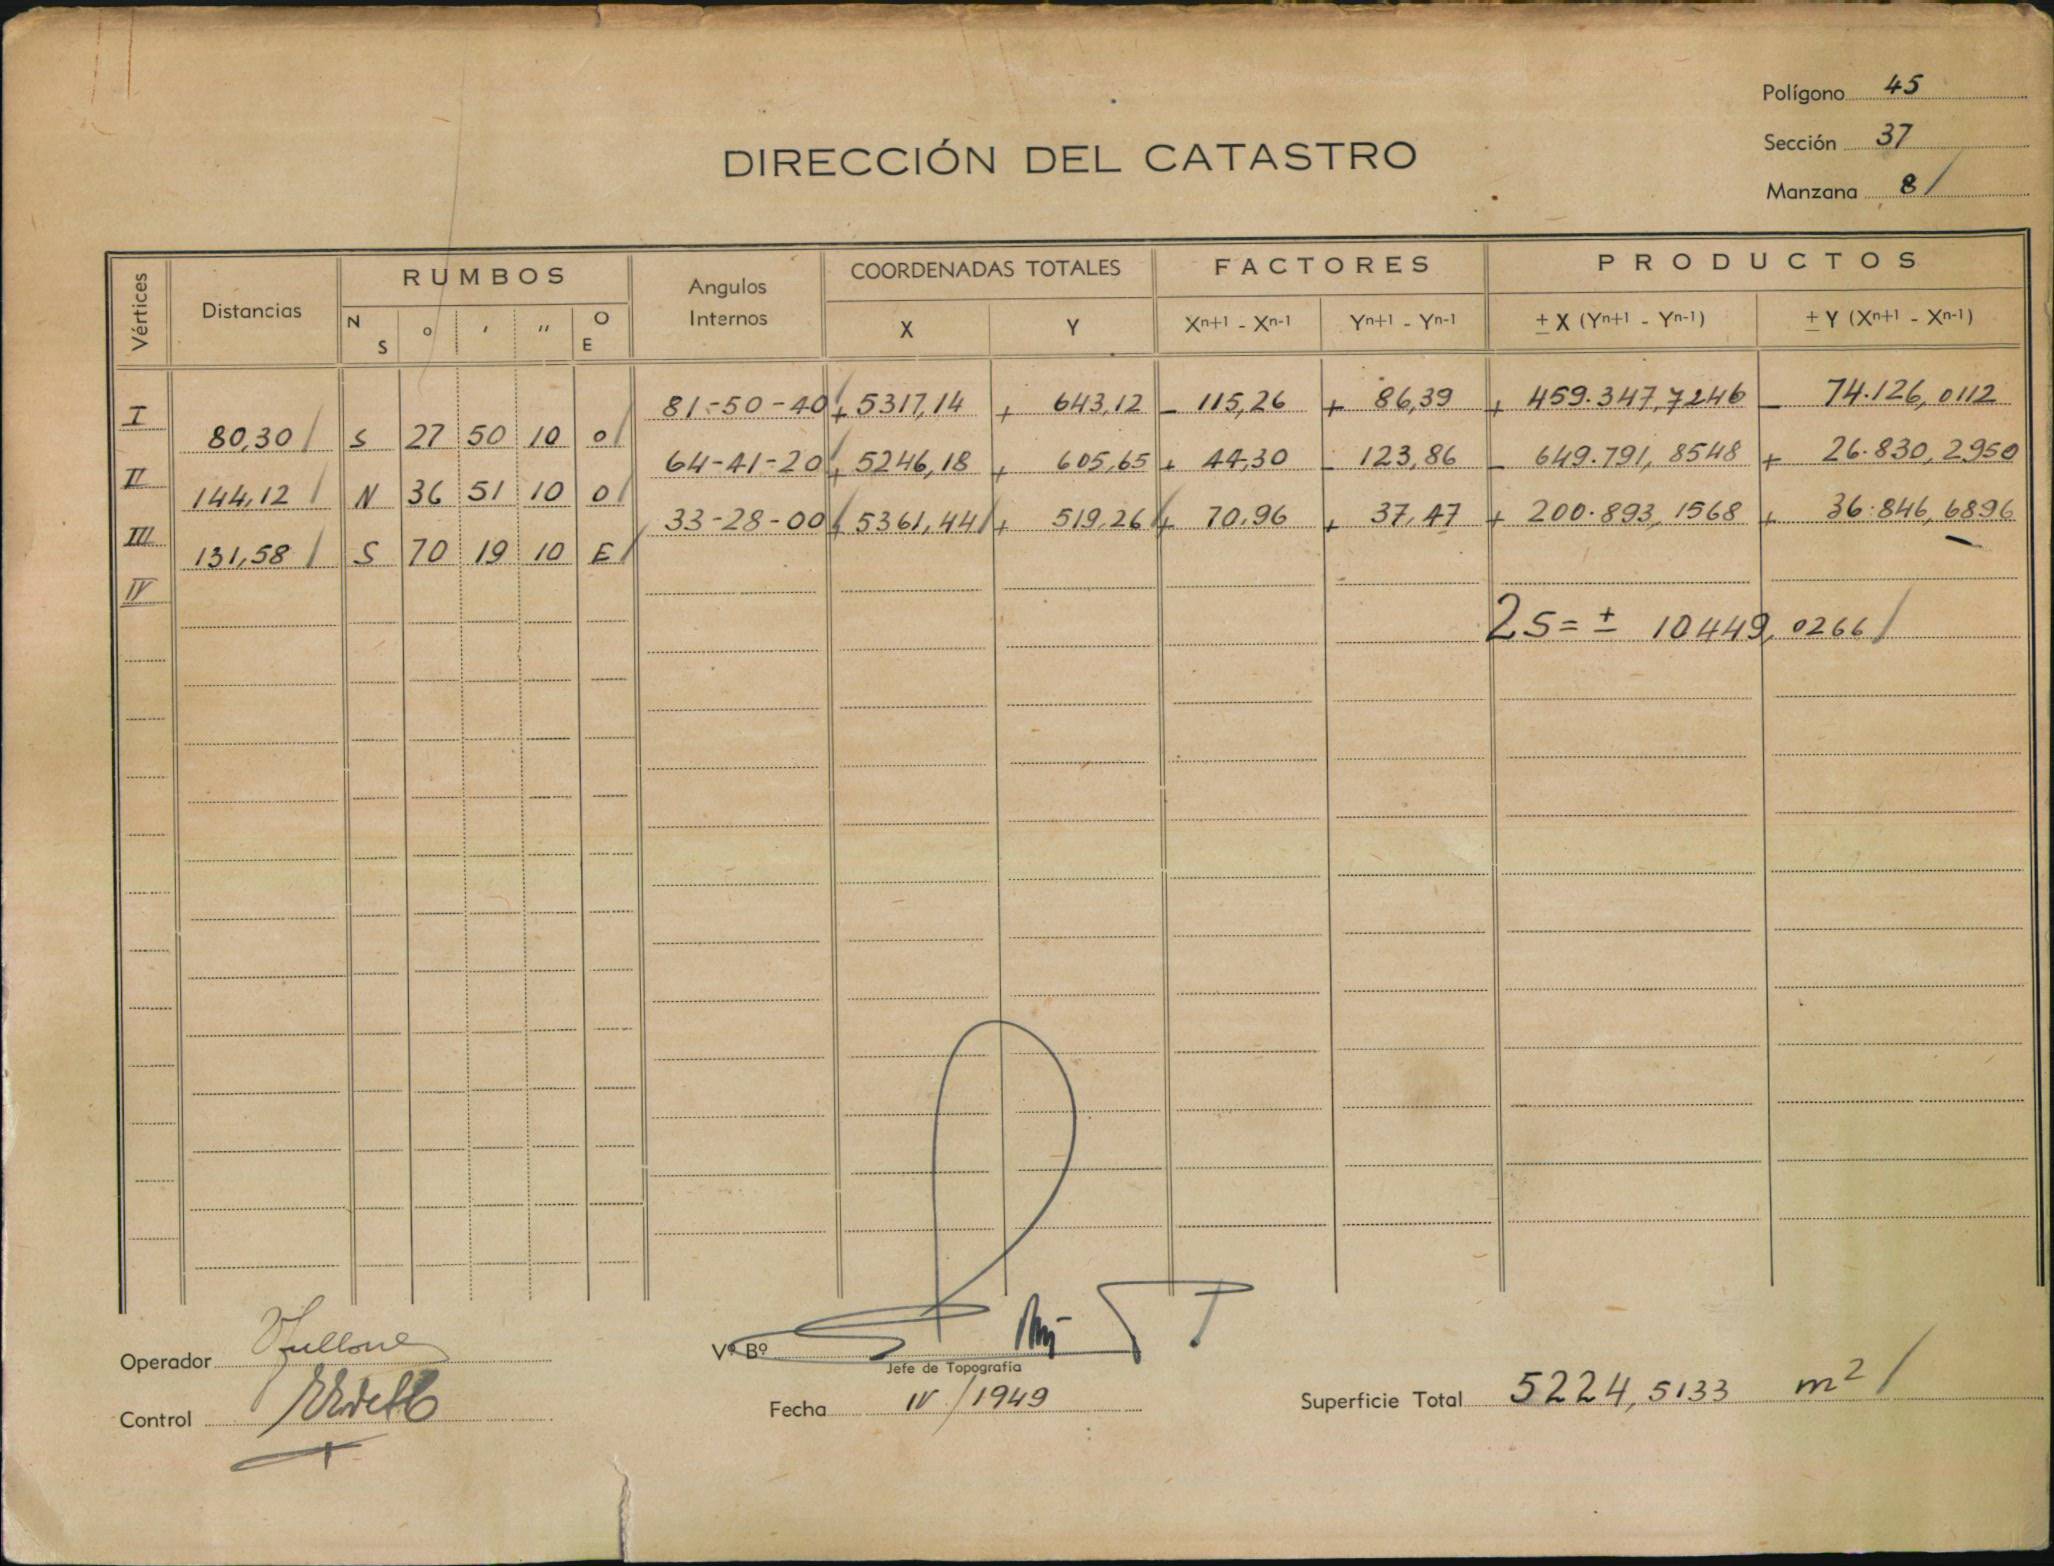 Polígono 45
Sección 37
Manzana 8
DIRECCIÓN DEL CATASTRO
Vértices Distancias RUMBOS Angulos Internos COORDENADAS TOTALES FACTORES PRODUCTOS
N S o ' '' O E X Y Xn+1 - Xn-1 Yn+1 - Yn-1 ± X (Yn+1 - Yn-1) ± Y (Xn+1 - Xn-1)
I 81-50-40 + 5317,14 + 643,12 - 115,26 + 86,39 + 459.347,7246 - 74.126,0112
80,30 S 27 50 10 O
II 64-41-20 + 5246,18 + 605,65 + 44,30 - 123,86 - 649.791,8548 + 26.830,2950
144,12 N 36 51 10 O
III 33-28-00 + 5361,44 + 519,26 + 70,96 + 37,47 + 200.893,1568 + 36.846,6896
131,58 S 70 19 10 E
IV
2S = ± 10449,0266
Operador
Vº Bº
Jefe de Topografía
Control
Fecha IV/1949
Superficie Total 5224,5133 m2